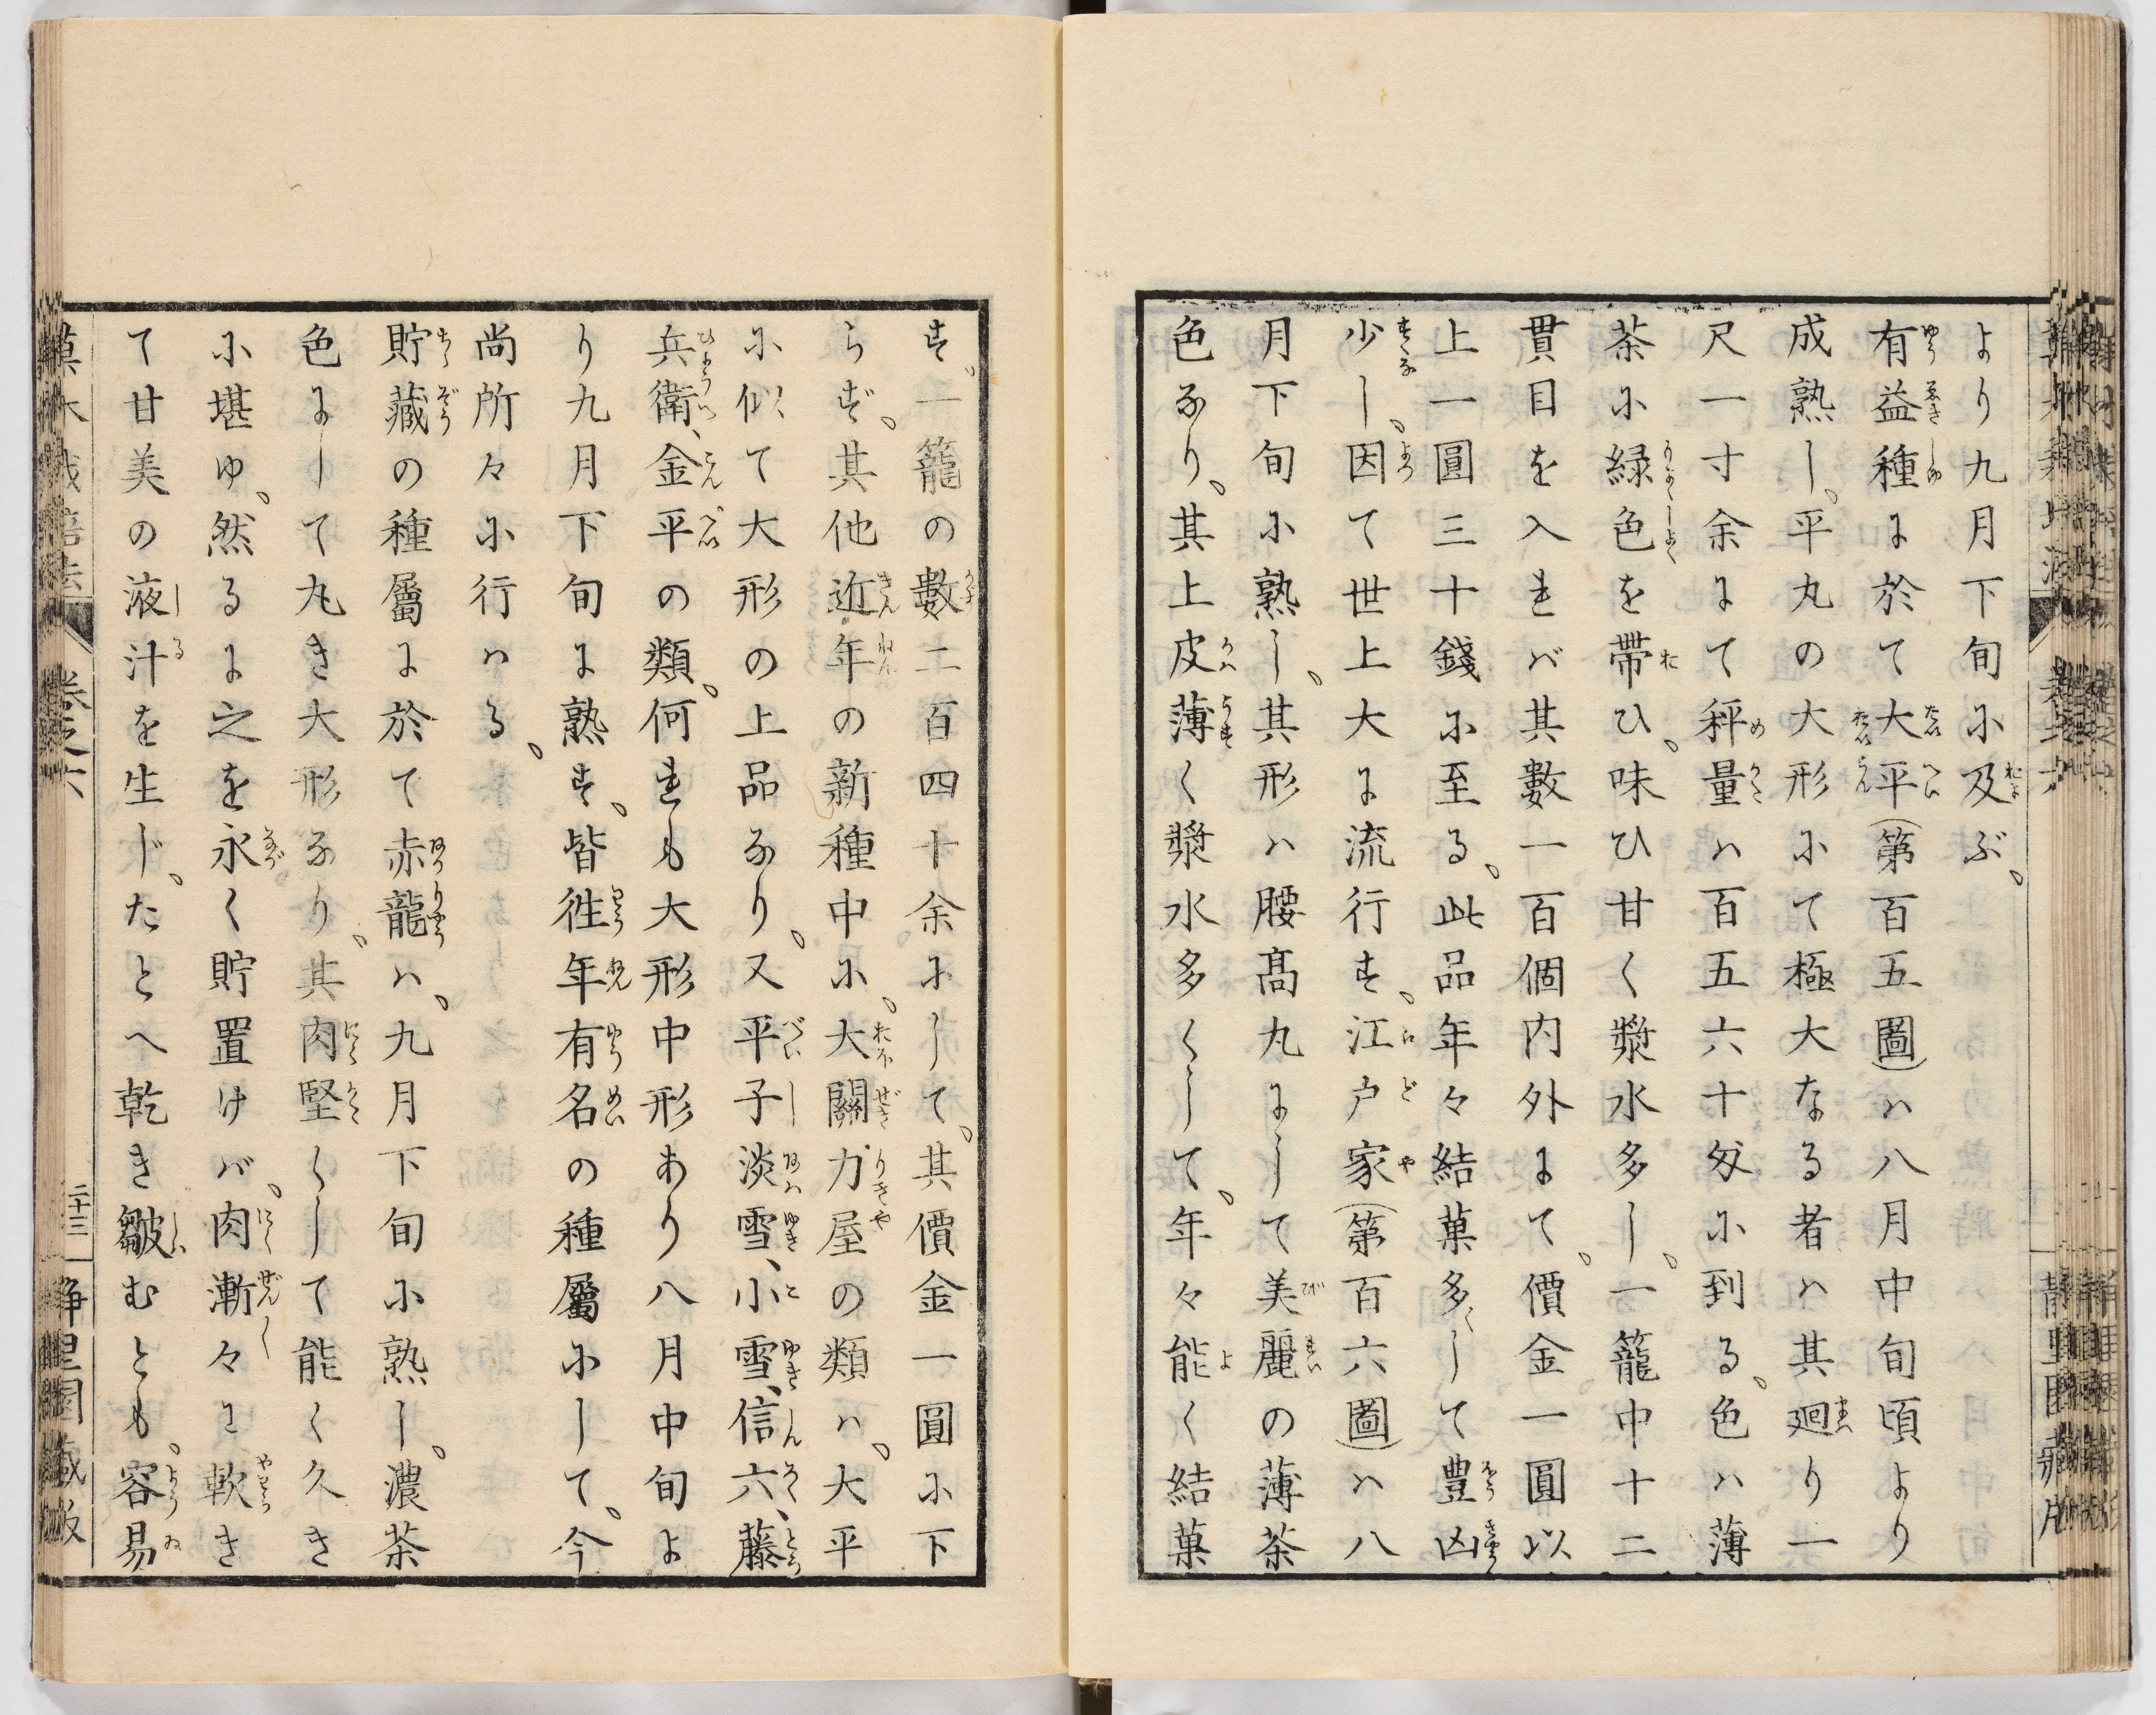 より九月下旬に及ぶ。
有益種に於て大平(第百五圖)ハ八月中旬頃より
成熟し。平丸の大形にて極大なる者ハ其廻り一
尺一寸余にて秤量ハ百五六十匁に到る。色ハ薄
茶に緑色を帶ひ。味ひ甘く漿水多し。一籠中十二
貫目を入れバ其數一百個内外にて。價金一圓以
上一圓三十錢に至る。此品年々結菓多くして豊凶
少し。因て世上大に流行す。江戸家(第百六圖)ハ八
月下旬に熟し。其形ハ腰高丸にして美麗の薄茶
色なり。其上皮薄く漿水多くして。年々能く結菓
す。一籠の數二百四十余にして。其價金一圓に下
らず。其他近年の新種中に。大關力屋の類ハ。大平
に似て大形の上品なり。又平子淡雪、小雪、信六、藤
兵衛、金平の類。何れも大形中形あり八月中旬よ
り九月下旬に熟す。皆徃年有名の種屬にして。今
尚所々に行ハる。
貯藏の種屬に於て赤龍ハ。九月下旬に熟し。濃茶
色にして丸き大形なり。其肉堅くして能く久き
に堪ゆ。然るに之を永く貯置けバ。肉漸々に軟き
て甘美の液汁を生じ。たとへ乾き皺むとも。容易
卷之六
二十三
静里園藏版